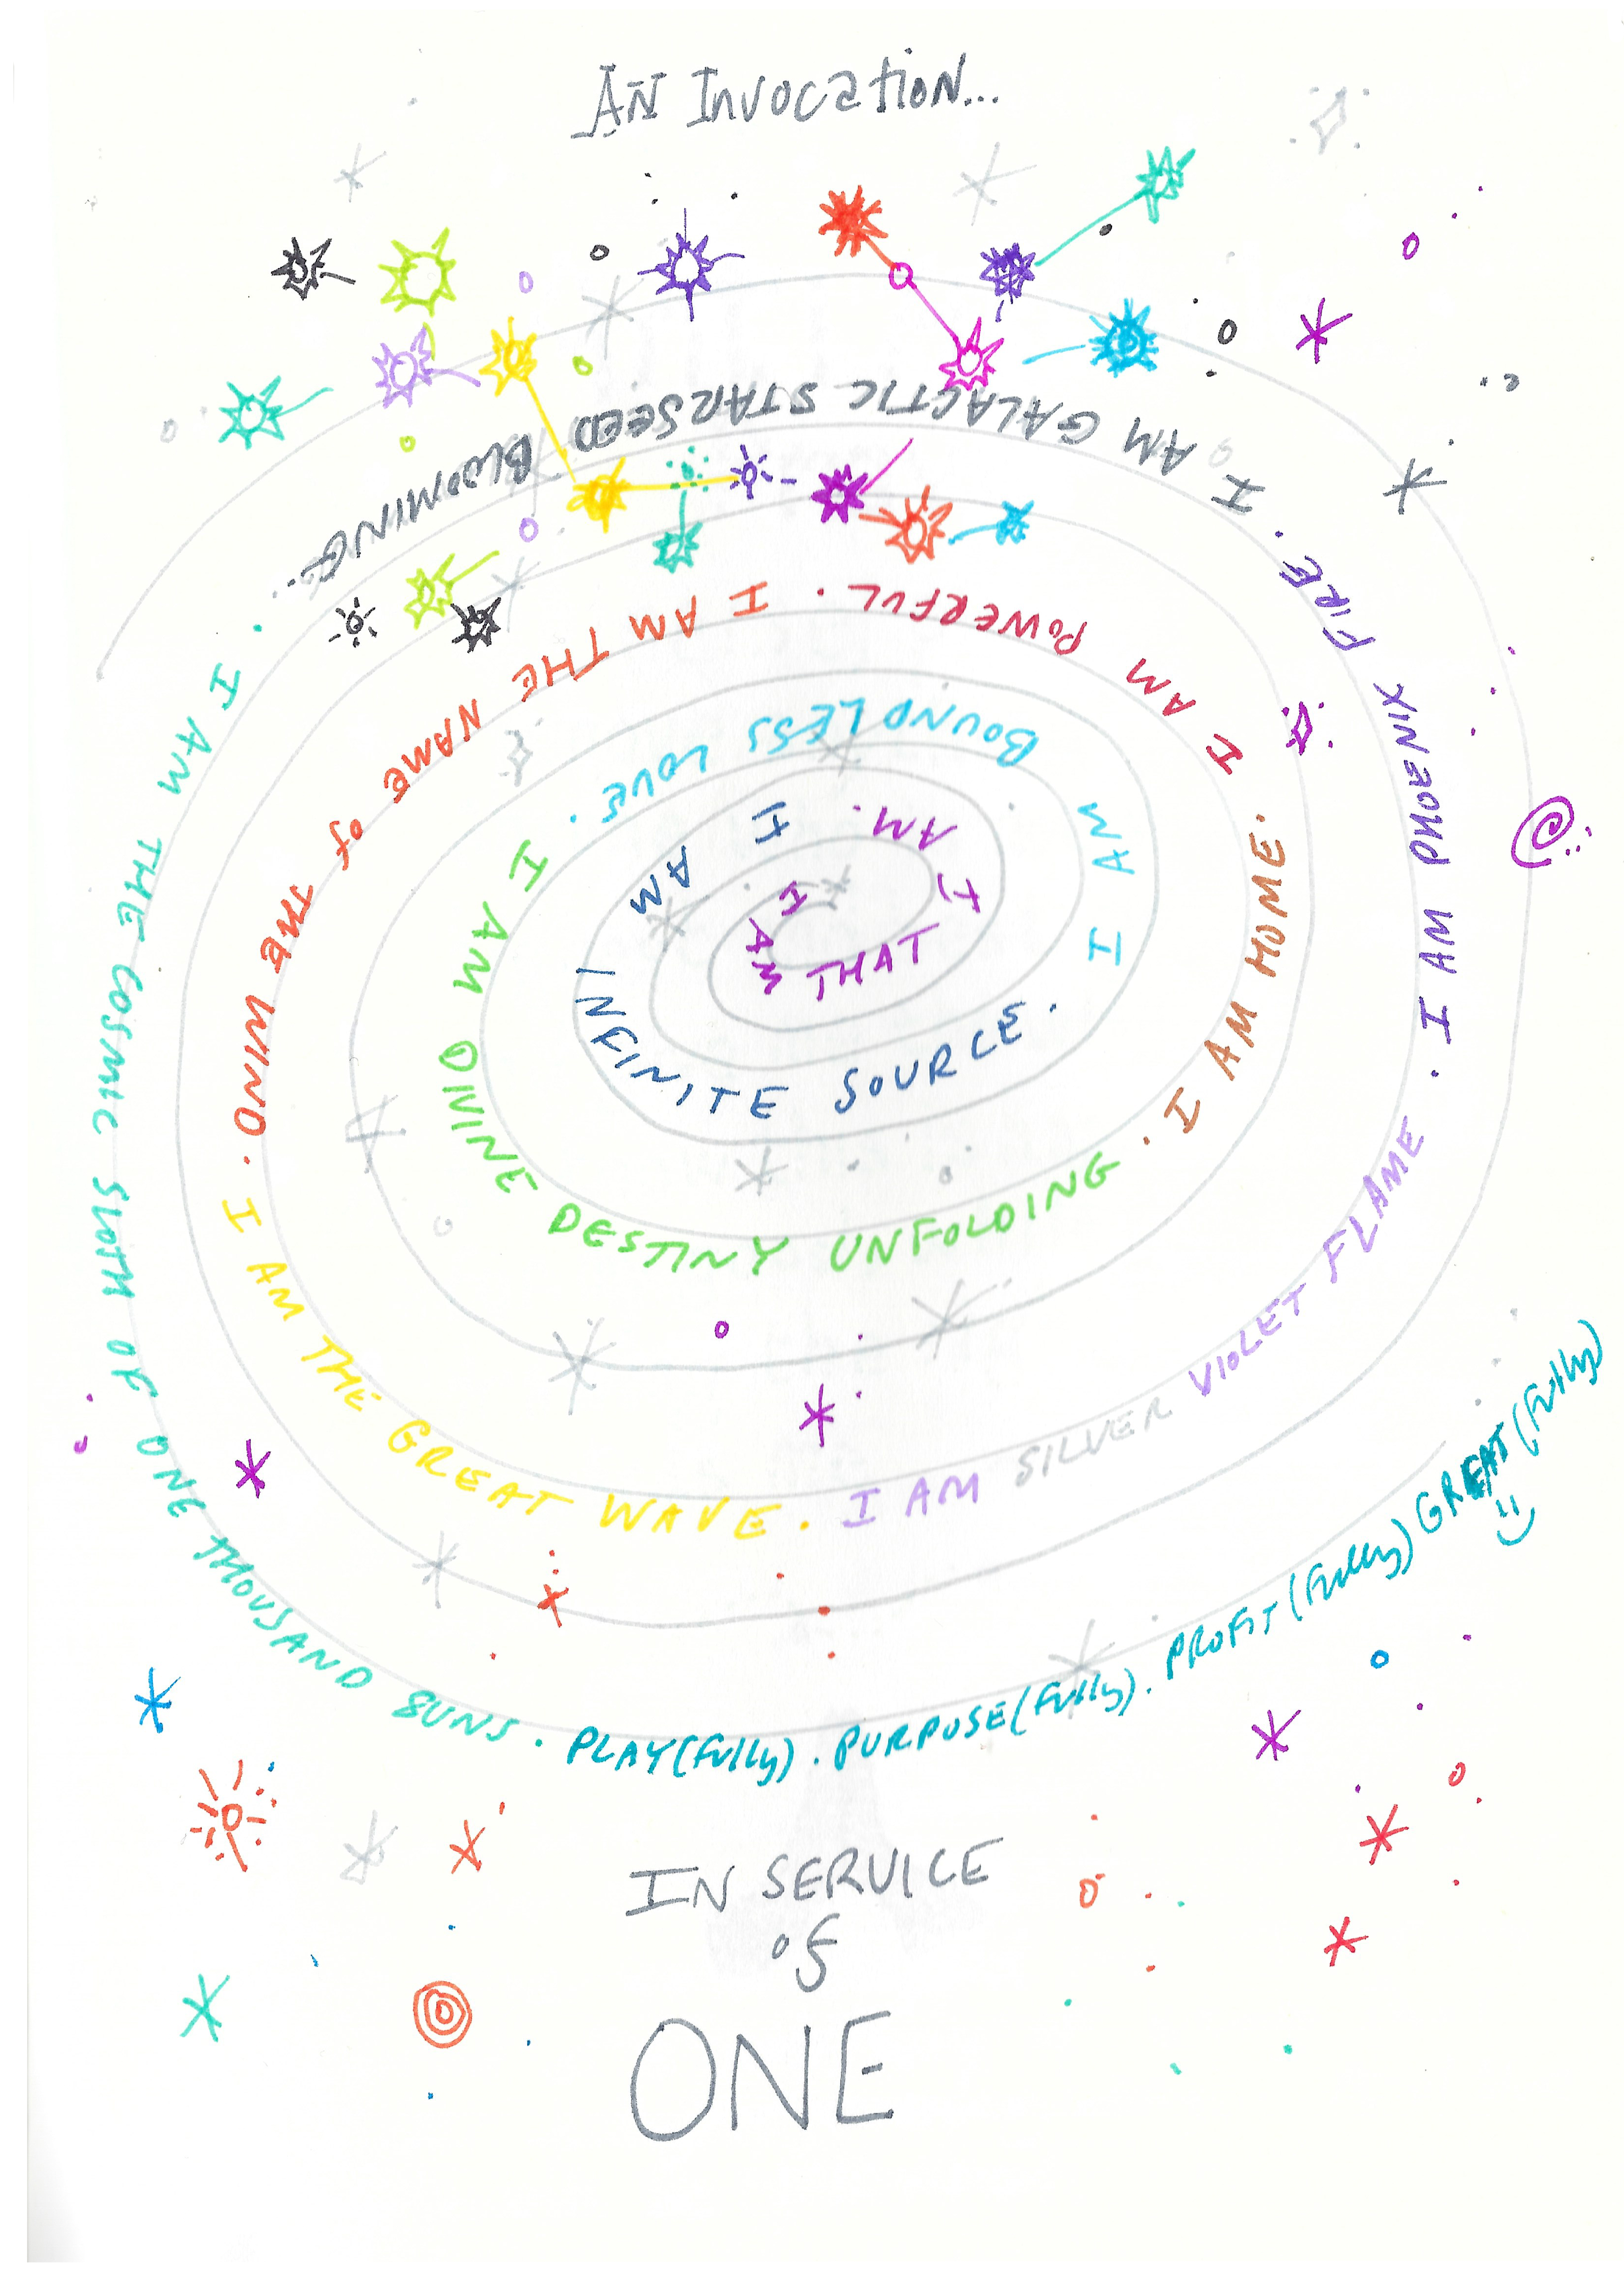 AN INVOCATION...
I AM THAT I AM.
I AM INFINITE SOURCE.
I AM BOUNDLESS LOVE.
I AM DIVINE DESTINY UNFOLDING.
I AM HOME.
I AM POWERFUL.
I AM THE NAME OF THE WIND.
I AM THE GREAT WAVE.
I AM SILVER VIOLET FLAME.
I AM PHOENIX FIRE.
I AM GALACTIC STARSEED BLOOMING...
I AM THE COSMIC SLOTH OF ONE THOUSAND SUNS.
PLAY(fully). PURPOSE(fully). PROFIT(fully) GREAT(fully)
IN SERVICE
of
ONE